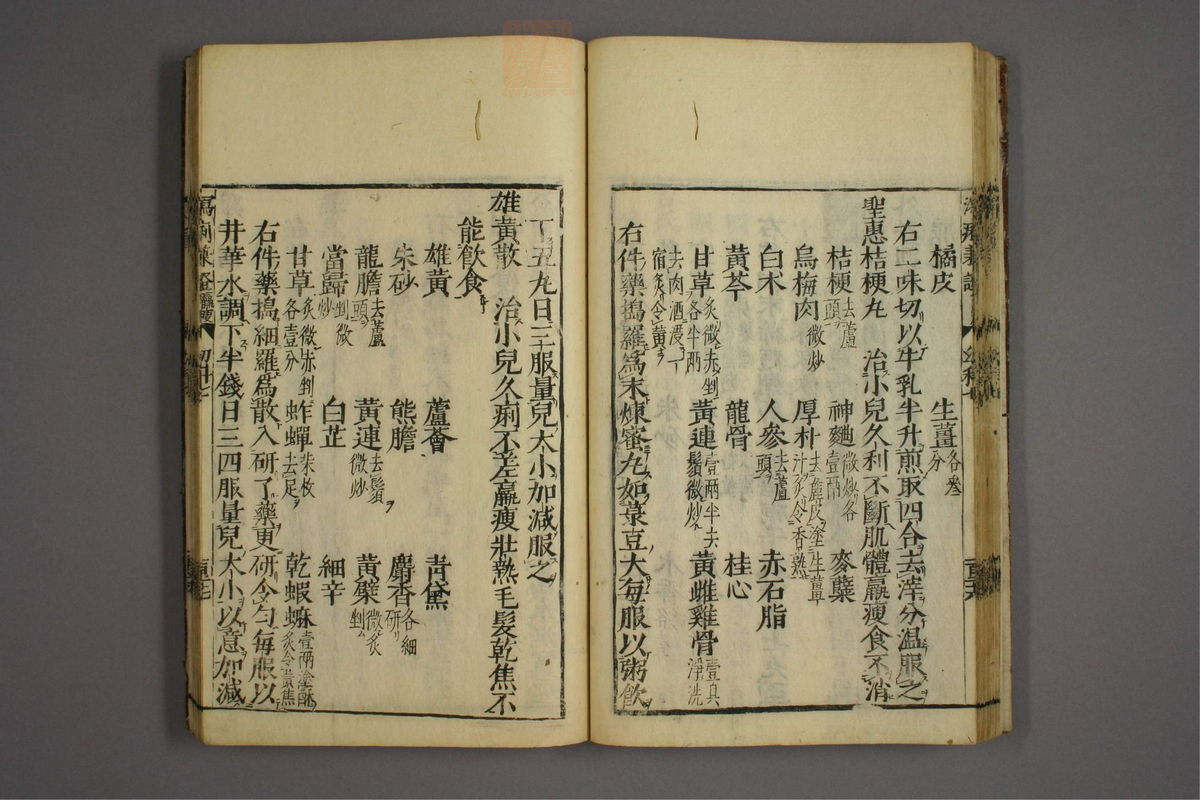 橘皮 生薑各叁分
右二味切以牛乳半升煎取四合去滓分温服之
聖惠桔梗丸 治小兒久利不斷肌體羸瘦食不消
桔梗去蘆頭 神麯微炒各壹兩 麥蘖
烏梅肉微炒 厚朴去麄皮塗生薑汁炙令香熟
白朮 人參去蘆頭 赤石脂
黄芩 龍骨 桂心
甘草炙微赤剉各半兩 黄連壹兩半去鬚微炒 黄雌雞骨壹具淨洗
去肉酒浸一宿炙令黄
右件藥搗羅爲末煉蜜丸如菉豆大每服以粥飲
丁五丸日三服量兒大小加減服之
雄黄散 治小兒久痢不差羸瘦壯熱毛髮乾焦不
能飲食
雄黄 蘆薈 青黛
朱砂 熊膽 麝香各細研
龍膽去蘆頭 黄連去鬚微炒 黄蘗微炙剉
當歸剉微炒 白芷 細辛
甘草炙微赤剉各壹分 蚱蟬柒枚去足 乾蝦蟆壹兩塗酥炙令黄焦
右件藥搗細羅爲散入研了藥更研令勻每服以
井華水調下半錢日三四服量兒大小以意加減